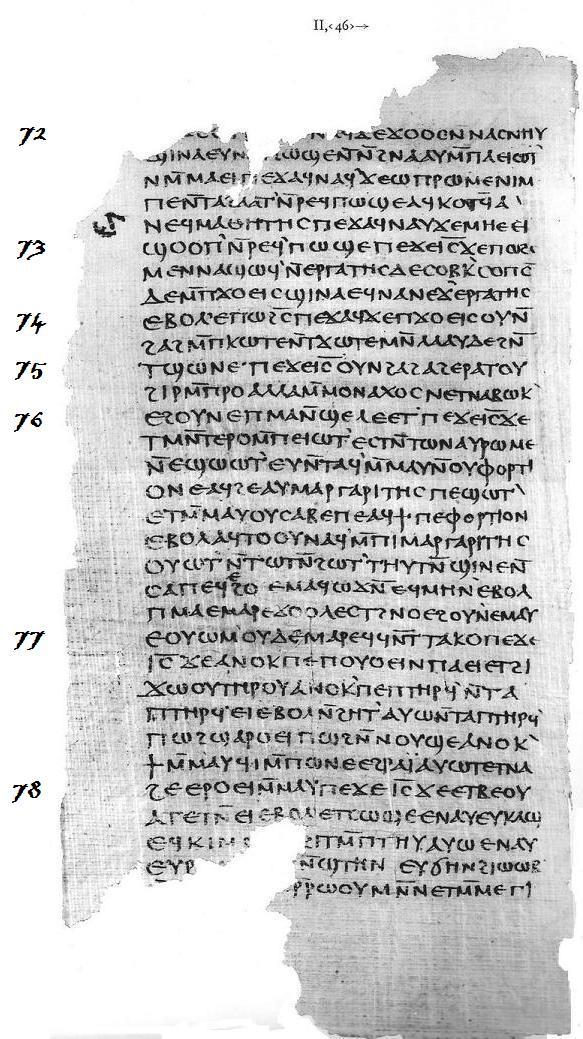 II,‹46›→
72
ⲁϥϫⲉϫⲟⲟⲥ ⲛ̄ⲛⲁⲥⲛⲏⲩ
ϣⲓⲛⲁ ⲉⲩⲛ ⲡⲱϣⲉ ⲛ̄ⲛ̄ϩⲛⲁⲁⲩ ⲙ̄ⲡⲁⲉⲓⲱⲧ
ⲛⲙ̄ⲙⲁⲉⲓ ⲡⲉϫⲁϥ ⲛⲁϥ ϫⲉ ⲱ ⲡⲣⲱⲙⲉ ⲛⲓⲙ
ⲡⲉⲛⲧⲁϩⲁⲁⲧ ⲛ̄ⲣⲉϥⲡⲱϣⲉ ⲁϥⲕⲟⲧϥ ⲁ
ⲛⲉϥⲙⲁⲑⲏⲧⲏⲥ ⲡⲉϫⲁϥ ⲛⲁⲩ ϫⲉ ⲙⲏ ⲉⲉⲓ
73
ϣⲟⲟⲡ ⲛ̄ⲣⲉϥⲡⲱϣⲉ ⲡⲉϫⲉ ⲓ̅ⲥ̅ ϫⲉ ⲡⲱϩⲥ
ⲙⲉⲛ ⲛⲁϣⲱϥ ⲛ̄ⲉⲣⲅⲁⲧⲏⲥ ⲇⲉ ⲥⲟⲃⲕ ⲥⲟⲡⲥ̄
ⲇⲉ ⲙ̄ⲡϫⲟⲉⲓⲥ ϣⲓⲛⲁ ⲉϥⲛⲁⲛⲉϫ ⲉⲣⲅⲁⲧⲏⲥ
74
ⲉⲃⲟⲗ ⲉⲡⲱϩⲥ̄ ⲡⲉϫⲁϥ ϫⲉ ⲡϫⲟⲉⲓⲥ ⲟⲩⲛ̄
ϩⲁϩ ⲙ̄ⲡⲕⲱⲧⲉ ⲛ̄ⲧϫⲱⲧⲉ ⲙⲛ̄ ⲗⲁⲁⲩ ⲇⲉ ϩⲛ̄
75
ⲧϣⲱⲛⲉ ⲡⲉϫⲉ ⲓ̅ⲥ̅ ⲟⲩⲛ ϩⲁϩ ⲁϩⲉⲣⲁⲧⲟⲩ
ϩⲓⲣⲙ̄ ⲡⲣⲟ ⲁⲗⲗⲁ ⲙ̄ⲙⲟⲛⲁⲭⲟⲥ ⲛⲉⲧⲛⲁⲃⲱⲕ
76
ⲉϩⲟⲩⲛ ⲉⲡⲙⲁ ⲛ̄ϣⲉⲗⲉⲉⲧ ⲡⲉϫⲉ ⲓ̅ⲥ̅ ϫⲉ
ⲧⲙⲛ̄ⲧⲉⲣⲟ ⲙ̄ⲡⲉⲓⲱⲧ ⲉⲥⲧⲛ̄ⲧⲱⲛ ⲁⲩⲣⲱⲙⲉ
ⲛ̄ⲉϣⲱⲱⲧ ⲉⲩⲛ̄ⲧⲁϥ ⲙ̄ⲙⲁⲩ ⲛ̄ⲟⲩⲫⲟⲣⲧⲓ
ⲟⲛ ⲉⲁϥϩⲉ ⲁⲩⲙⲁⲣⲅⲁⲣⲓⲧⲏⲥ ⲡⲉϣⲱⲧ
ⲉⲧⲙ̄ⲙⲁⲩ ⲟⲩⲥⲁⲃⲉ ⲡⲉ ⲁϥϯ ⲡⲉⲫⲟⲣⲧⲓⲟⲛ
ⲉⲃⲟⲗ ⲁϥⲧⲟⲟⲩ ⲛⲁϥ ⲙ̄ⲡⲓⲙⲁⲣⲅⲁⲣⲓⲧⲏⲥ
ⲟⲩⲱⲧ ⲛ̄ⲧⲱⲧⲛ̄ ϩⲱⲧⲧⲏⲩⲧⲛ̄ ϣⲓⲛⲉ ⲛ̄
ⲥⲁ ⲡⲉϥⲉϩⲟ ⲉⲙⲁϥⲱϫⲛ̄ ⲉϥⲙⲏⲛ ⲉⲃⲟⲗ
ⲡⲙⲁ ⲉⲙⲁⲣⲉ ϫⲟⲟⲗⲉⲥ ⲧϩⲛⲟ ⲉϩⲟⲩⲛ ⲉⲙⲁⲩ
77
ⲉⲟⲩⲱⲙ ⲟⲩⲇⲉ ⲙⲁⲣⲉϥϥⲛ̄ⲧ ⲧⲁⲕⲟ ⲡⲉϫⲉ
ⲓ̅ⲥ̅ ϫⲉ ⲁⲛⲟⲕ ⲡⲉ ⲡⲟⲩⲟⲉⲓⲛ ⲡⲁⲉⲓ ⲉⲧϩⲓ
ϫⲱⲟⲩ ⲧⲏⲣⲟⲩ ⲁⲛⲟⲕ ⲡⲉ ⲡⲧⲏⲣϥ ⲛ̄ⲧⲁ
ⲡⲧⲏⲣϥ ⲉⲓ ⲉⲃⲟⲗ ⲛ̄ϩⲏⲧ ⲁⲩⲱ ⲛ̄ⲧⲁⲡⲧⲏⲣϥ
ⲡⲱϩ ϣⲁⲣⲟⲉⲓ ⲡⲱϩ ⲛ̄ⲛⲟⲩϣⲉ ⲁⲛⲟⲕ
ϯⲙ̄ⲙⲁⲩ ϥⲓ ⲙ̄ⲡⲱⲛⲉ ⲉϩⲣⲁⲓ̈ ⲁⲩⲱ ⲧⲉⲧⲛⲁ
78
ϩⲉ ⲉⲣⲟⲉⲓ ⲙ̄ⲙⲁⲩ ⲡⲉϫⲉ ⲓ̅ⲥ̅ ϫⲉ ⲉⲧⲃⲉ ⲟⲩ
ⲁⲧⲉⲧⲛ̄ⲉⲓ ⲉⲃⲟⲗ ⲉⲧⲥⲱϣⲉ ⲉⲛⲁⲩ ⲉⲩⲕⲁϣ
ⲉϥⲕⲓⲙ ϩⲓⲧⲙ̄ ⲡⲧⲏⲩ ⲁⲩⲱ ⲉⲛⲁⲩ
ⲉⲩⲣ ⲛ̄ϣⲧⲏⲛ ⲉⲩϭⲏⲛ ϩⲓⲱⲱⲃ
ⲣ̄ⲣⲱⲟⲩ ⲙⲛ̄ ⲛⲉⲧⲙ̄ⲙⲉⲅⲓ